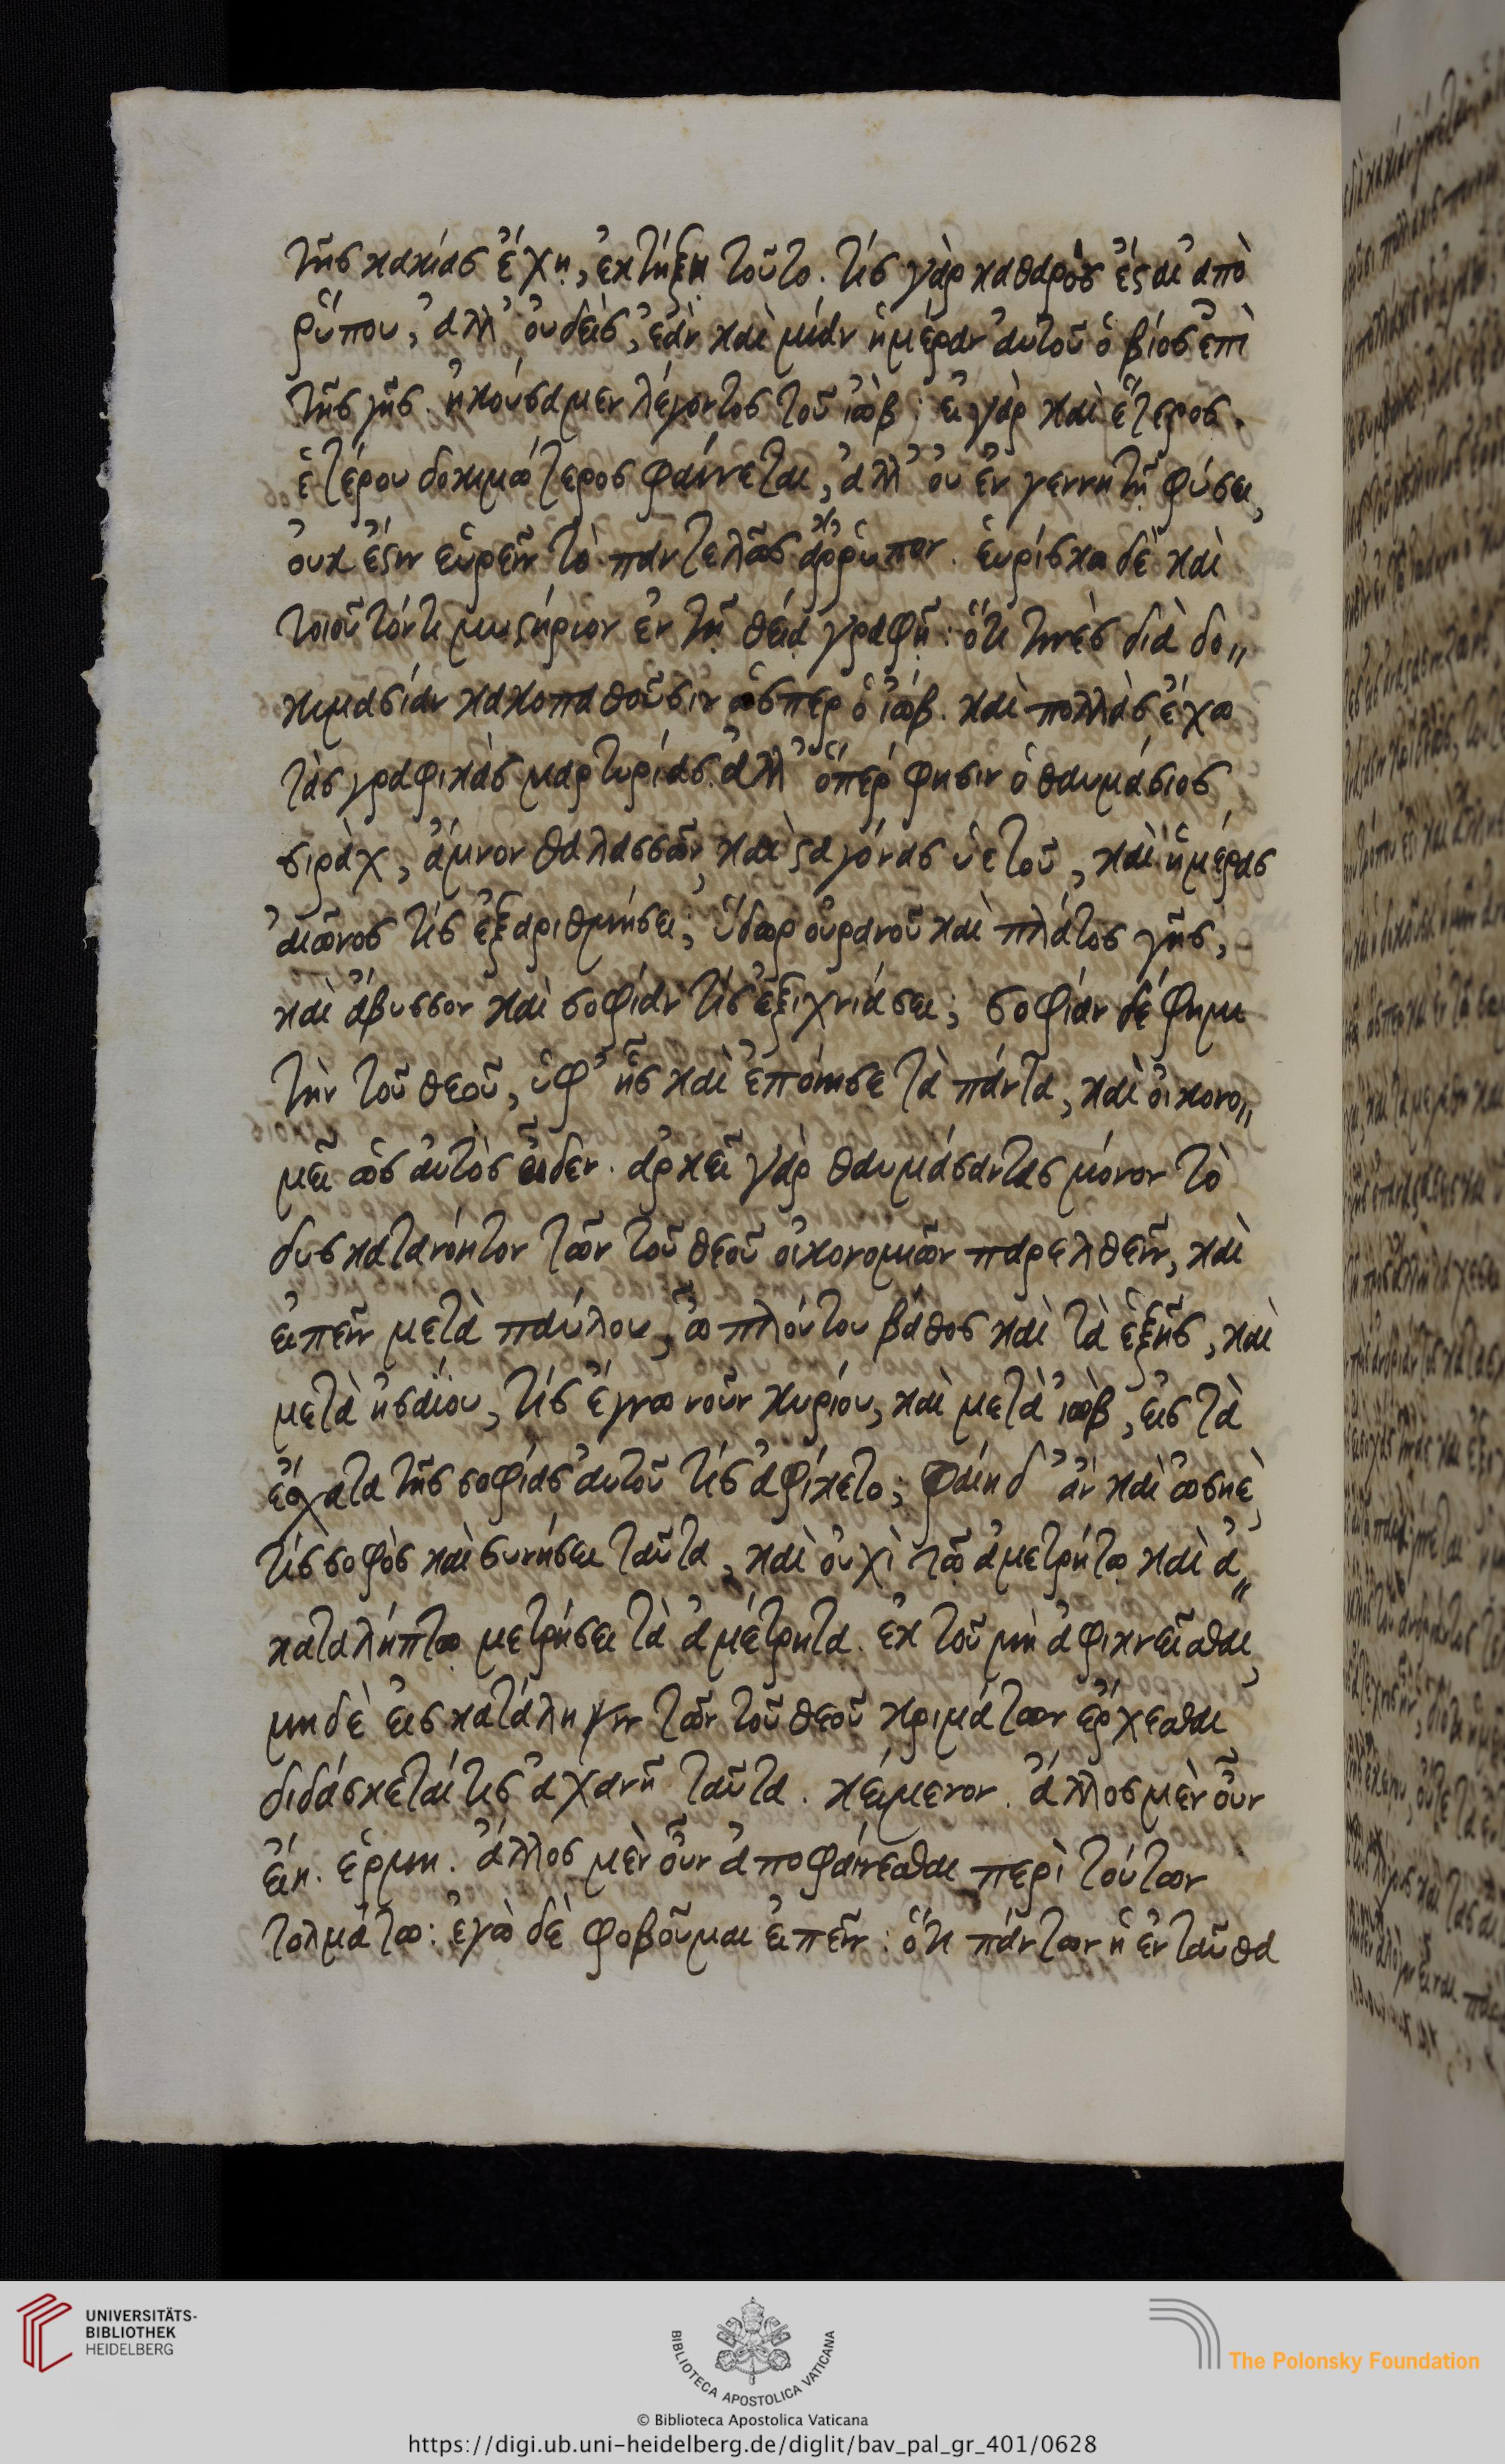 τῆς κακίας ἔχῃ, ἐκτήξῃ τοῦτο. τίς γὰρ καθαρὸς ἔσται ἀπὸ
ῥύπου, ἀλλ' οὐδεὶς, ἐὰν καὶ μίαν ἡμέραν αὐτοῦ ὁ βίος ἐπὶ
τῆς γῆς. ἠκούσαμεν λέγοντος τοῦ ἰὼβ; εἰ γὰρ καὶ ἕτερος.
ἑτέρου δοκιμώτερος φαίνεται, ἀλλ' οὐ ἐν γεννητῇ φύσει,
οὐκ ἔστιν εὑρεῖν τὸ παντελῶς ἄρρυπον. εὑρίσκω δὲ καὶ
τοιοῦτόν τι μυστήριον ἐν τῇ θείᾳ γραφῇ: ὅτι τινὲς διὰ δο〃
κιμασίαν κακοπαθοῦσιν ὥσπερ ὁ ἰώβ. καὶ πολλὰς ἔχω
τὰς γραφικὰς μαρτυρίας. ἀλλ' ὅπερ φησιν ὁ θαυμάσιος
σιρὰχ, ἄμνον θαλασσῶν, καὶ σταγόνας ὑετοῦ, καὶ ἡμέρας
αἰῶνος τίς ἐξαριθμήσει; ὕδωρ οὐρανοῦ καὶ πλάτος γῆς,
καὶ ἄβυσσον καὶ σοφίαν τίς ἐξιχνιάσει; σοφίαν δέ φημι
τὴν τοῦ θεοῦ, ὑφ' ἧς καὶ ἐποίησε τὰ πάντα, καὶ οἰκονο〃
μεῖ ὡς αὐτὸς οἶδεν. ἀρκεῖ γὰρ θαυμάσαντας μόνον τὸ
δυσκατανόητον τῶν τοῦ θεοῦ οἰκονομιῶν παρελθεῖν, καὶ
εἰπεῖν μετὰ παύλου, ὦ πλούτου βάθος καὶ τὰ ἑξῆς, καὶ
μετὰ ἠσαΐου, τίς ἔγνω νοῦν κυρίου, καὶ μετὰ ἰὼβ, εἰς τὰ
ἔσχατα τῆς σοφίας αὐτοῦ τίς ἀφίκετο; φαίη δ' ἂν καὶ ὠσηὲ
τίς σοφὸς καὶ συνήσει ταῦτα, καὶ οὐχὶ τῷ ἀμετρήτῳ καὶ ἀ〃
καταλήπτῳ μετρήσει τὰ ἀμέτρητα. ἐκ τοῦ μὴ ἀφικνεῖσθαι
μηδὲ εἰς κατάληψιν τῶν τοῦ θεοῦ κριμάτων ἔρχεσθαι
διδάσκεταί τις ἀχανῆ ταῦτα. κείμενον. ἄλλος μὲν οὖν
εἴη. ἑρμη. ἄλλος μὲν οὖν ἀποφαίνεσθαι περὶ τούτων
τολμάτω: ἐγὼ δὲ φοβοῦμαι εἰπεῖν: ὅτι πάντων ἡ ἐνταῦθα
UNIVERSITÄTS-
BIBLIOTHEK
HEIDELBERG
BIBLIOTECA APOSTOLICA VATICANA
The Polonsky Foundation
© Biblioteca Apostolica Vaticana
https://digi.ub.uni-heidelberg.de/diglit/bav_pal_gr_401/0628